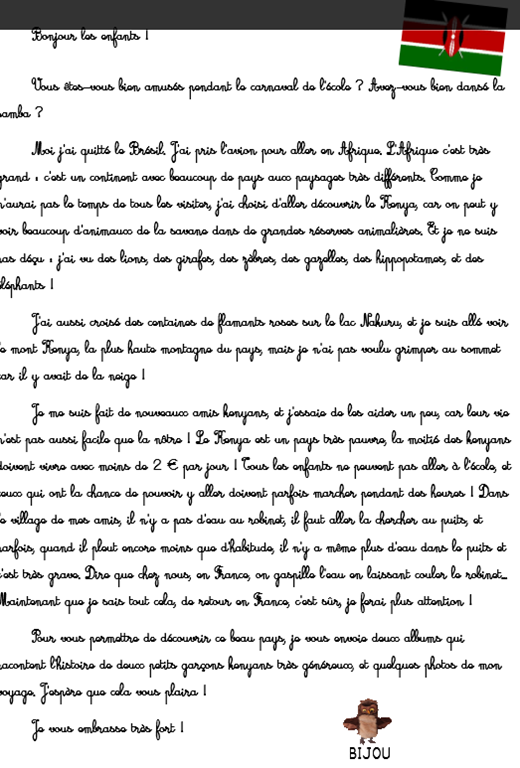 Bonjour les enfants !
Vous êtes-vous bien amusés pendant le carnaval de l'école ? Avez-vous bien dansé la
samba ?
Moi j'ai quitté le Brésil. J'ai pris l'avion pour aller en Afrique. L'Afrique c'est très
grand : c'est un continent avec beaucoup de pays aux paysages très différents. Comme je
n'aurai pas le temps de tous les visiter, j'ai choisi d'aller découvrir le Kenya, car on peut y
voir beaucoup d'animaux de la savane dans de grandes réserves animalières. Et je ne suis
pas déçu : j'ai vu des lions, des girafes, des zèbres, des gazelles, des hippopotames, et des
éléphants !
J'ai aussi croisé des centaines de flamants roses sur le lac Nakuru, et je suis allé voir
le mont Kenya, la plus haute montagne du pays, mais je n'ai pas voulu grimper au sommet
car il y avait de la neige !
Je me suis fait de nouveaux amis kenyans, et j'essaie de les aider un peu, car leur vie
n'est pas aussi facile que la nôtre ! Le Kenya est un pays très pauvre, la moitié des kenyans
doivent vivre avec moins de 2 € par jour ! Tous les enfants ne peuvent pas aller à l'école, et
ceux qui ont la chance de pouvoir y aller doivent parfois marcher pendant des heures ! Dans
le village de mes amis, il n'y a pas d'eau au robinet, il faut aller la chercher au puits, et
parfois, quand il pleut encore moins que d'habitude, il n'y a même plus d'eau dans le puits et
c'est très grave. Dire que chez nous, en France, on gaspille l'eau en laissant couler le robinet...
Maintenant que je sais tout cela, de retour en France, c'est sûr, je ferai plus attention !
Pour vous permettre de découvrir ce beau pays, je vous envoie deux albums qui
racontent l'histoire de deux petits garçons kenyans très généreux, et quelques photos de mon
voyage. J'espère que cela vous plaira !
Je vous embrasse très fort !
BIJOU